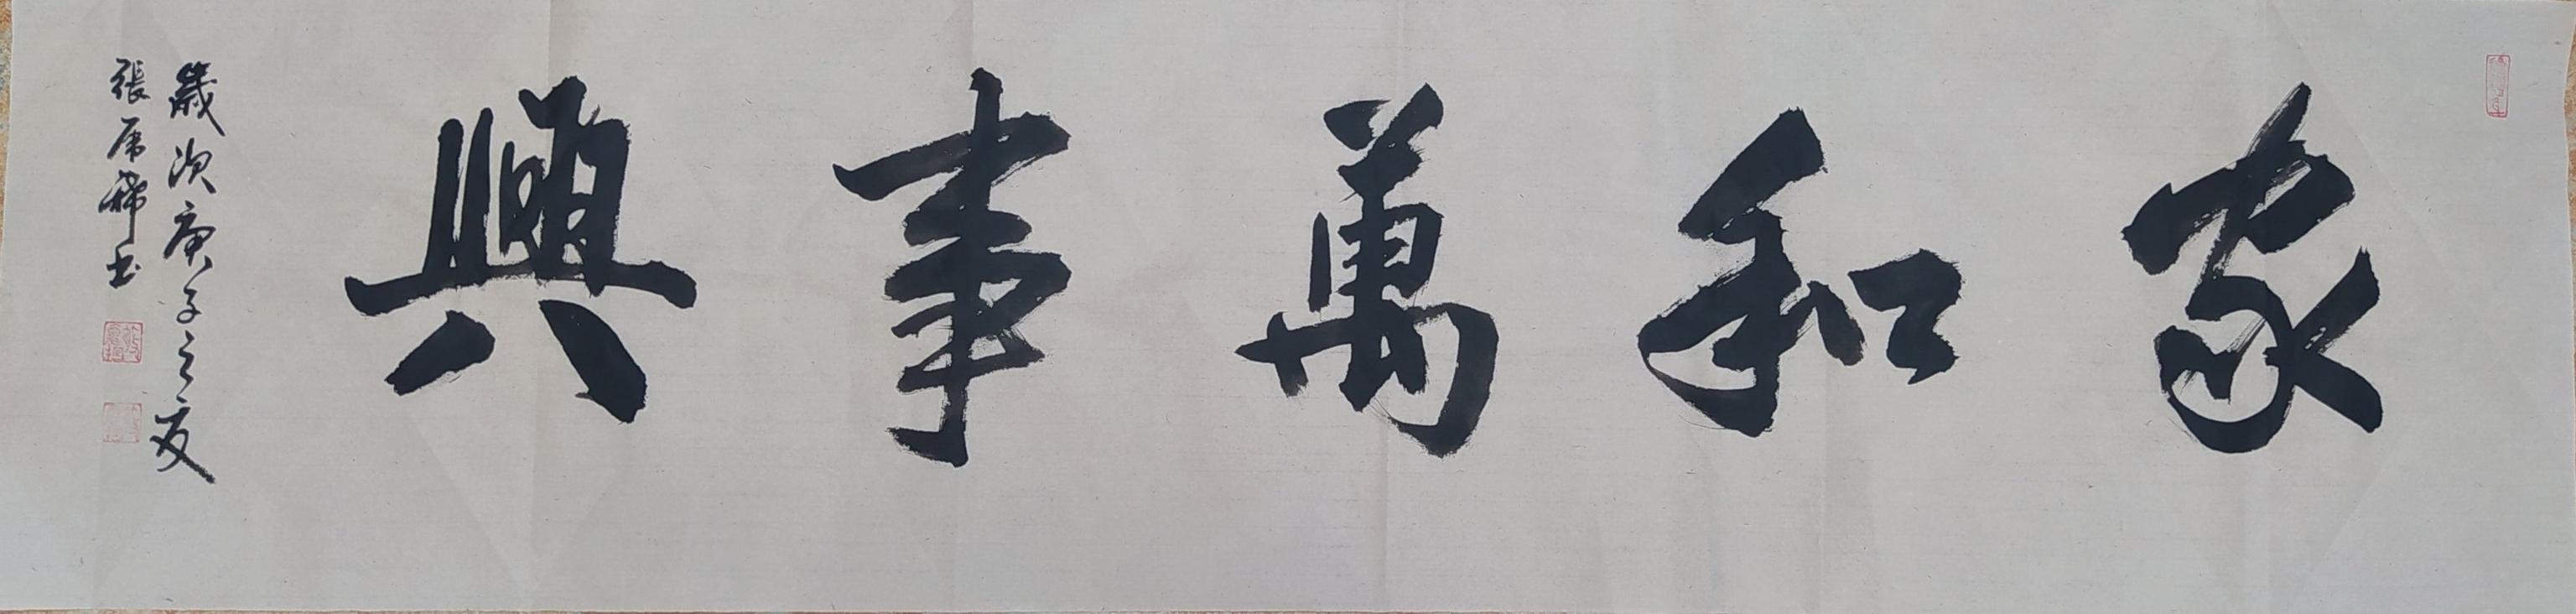 家和萬事興
歲次庚子之夏
張席珍书